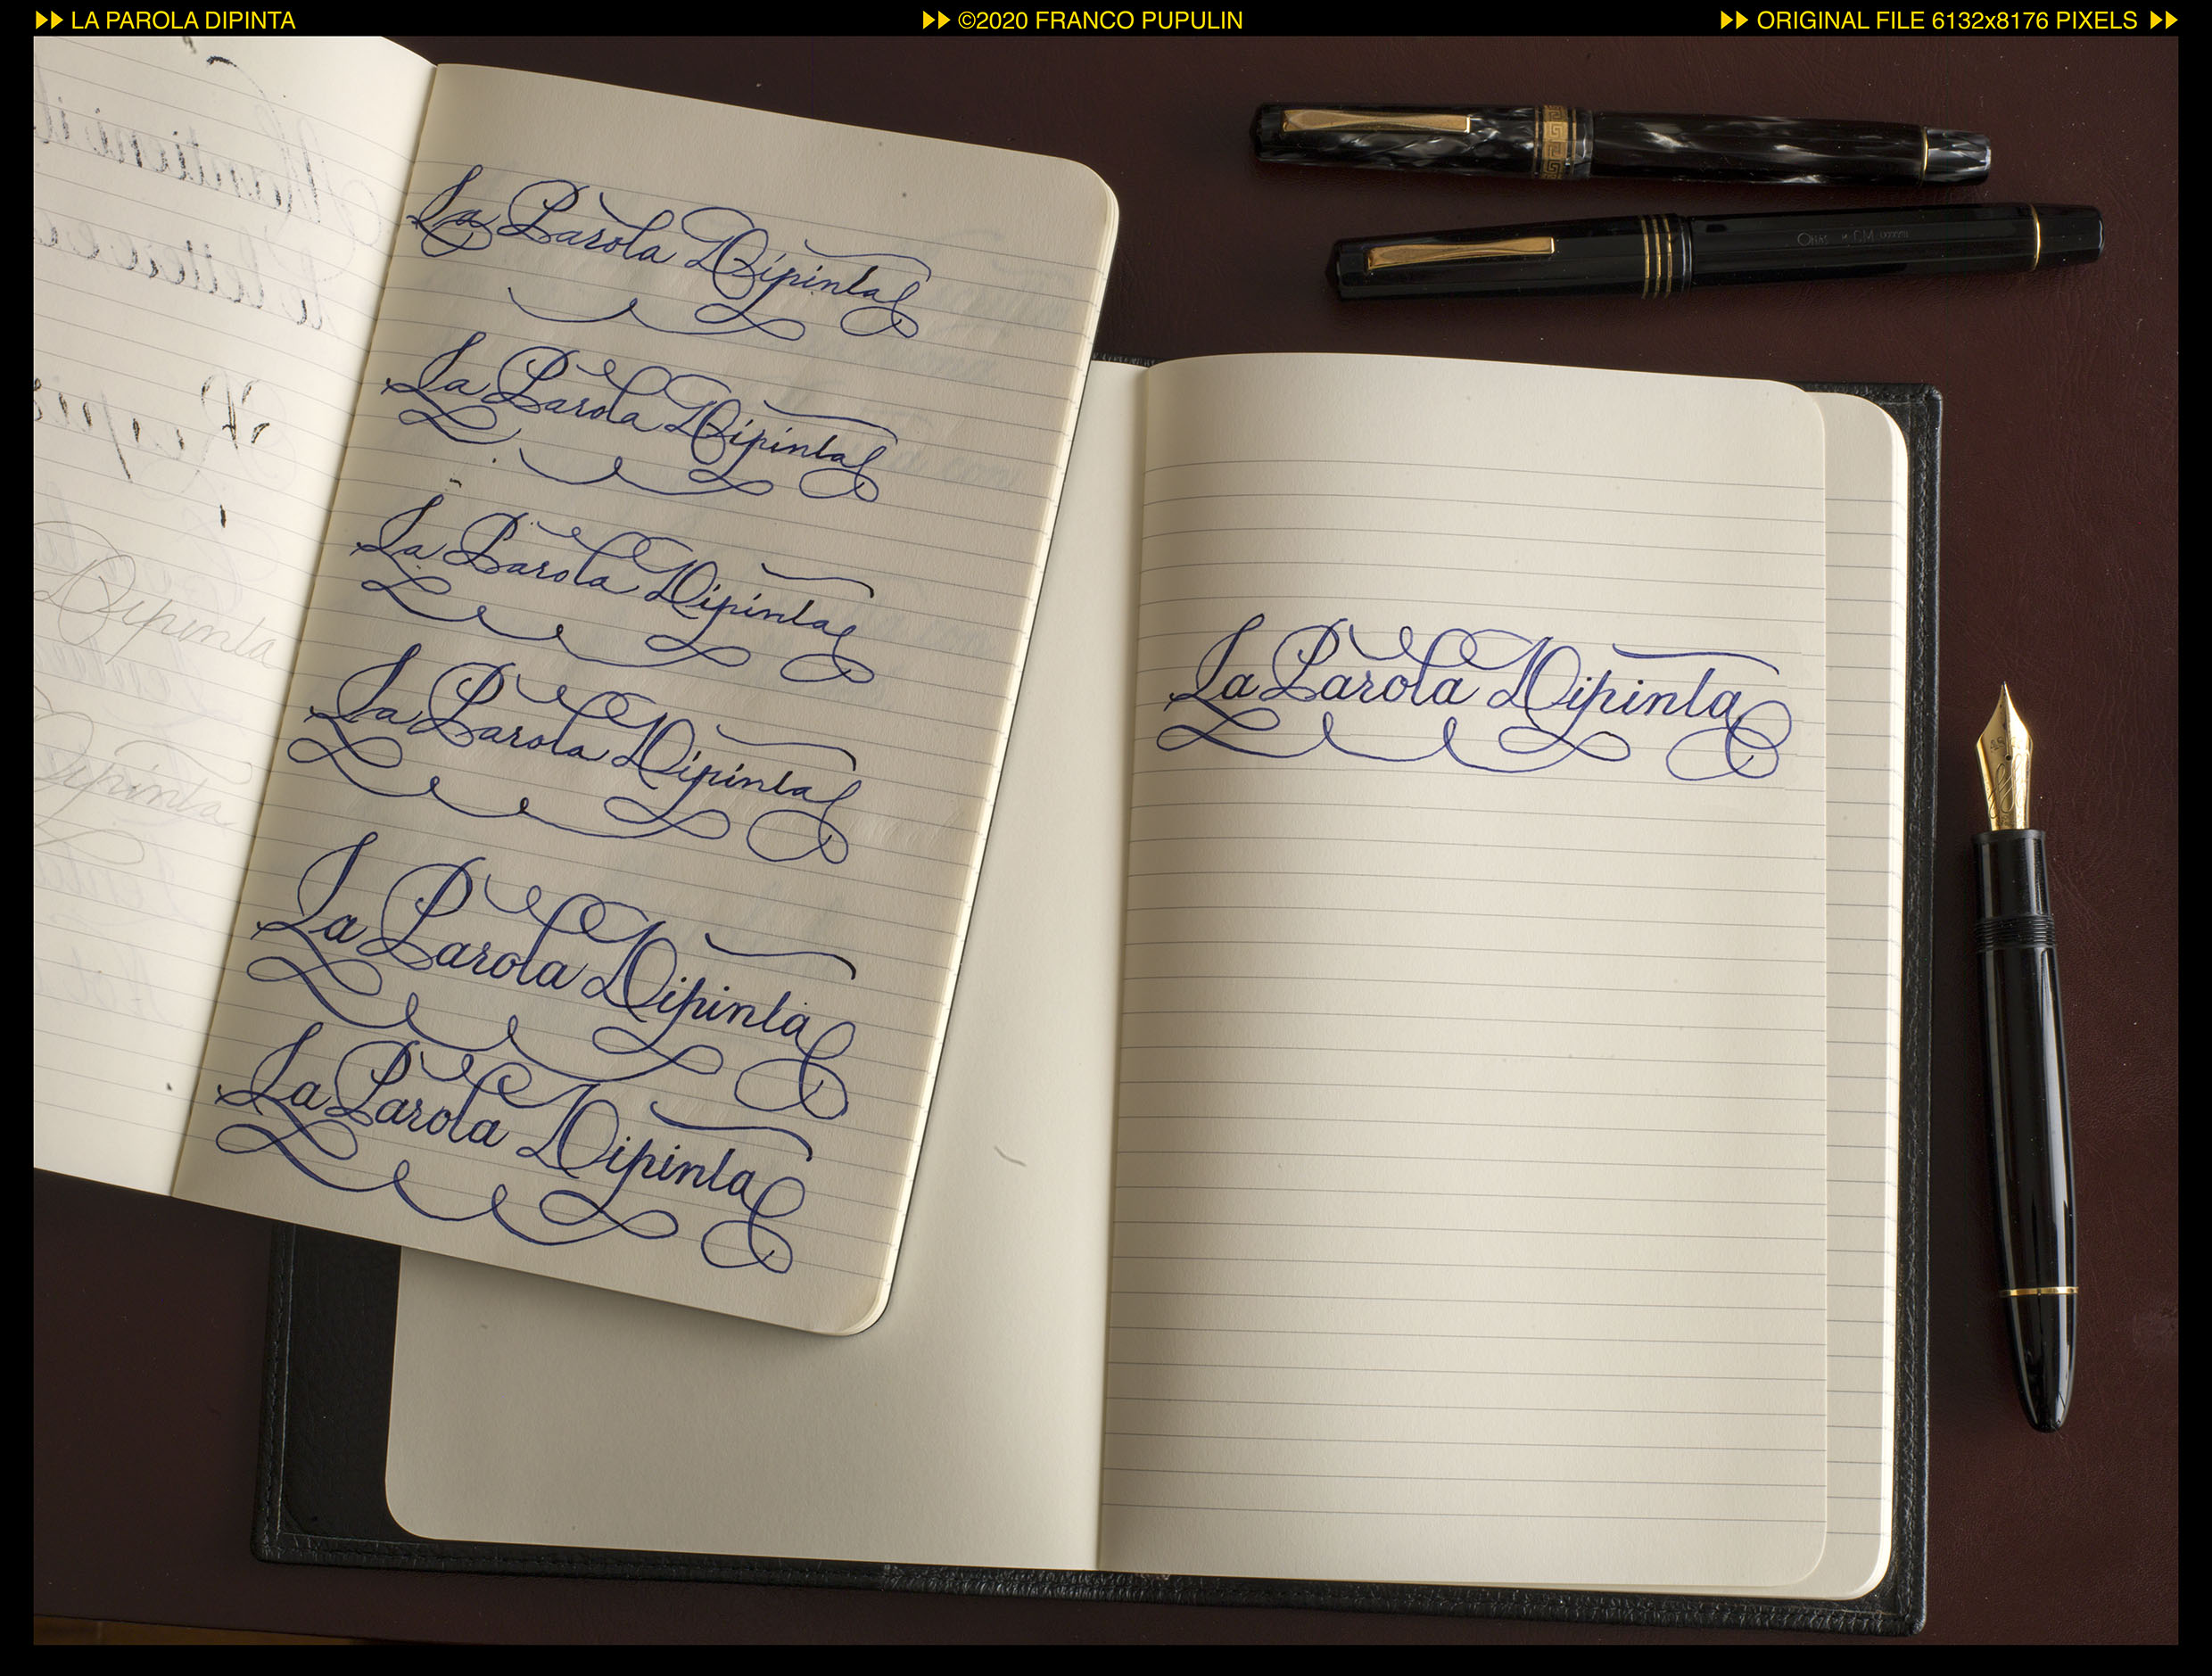 LA PAROLA DIPINTA
©2020 FRANCO PUPULIN
ORIGINAL FILE 6132x8176 PIXELS
La Parola Dipinta
La Parola Dipinta
La Parola Dipinta
La Parola Dipinta
La Parola Dipinta
La Parola Dipinta
Dipinta
Dipinta
La Parola Dipinta